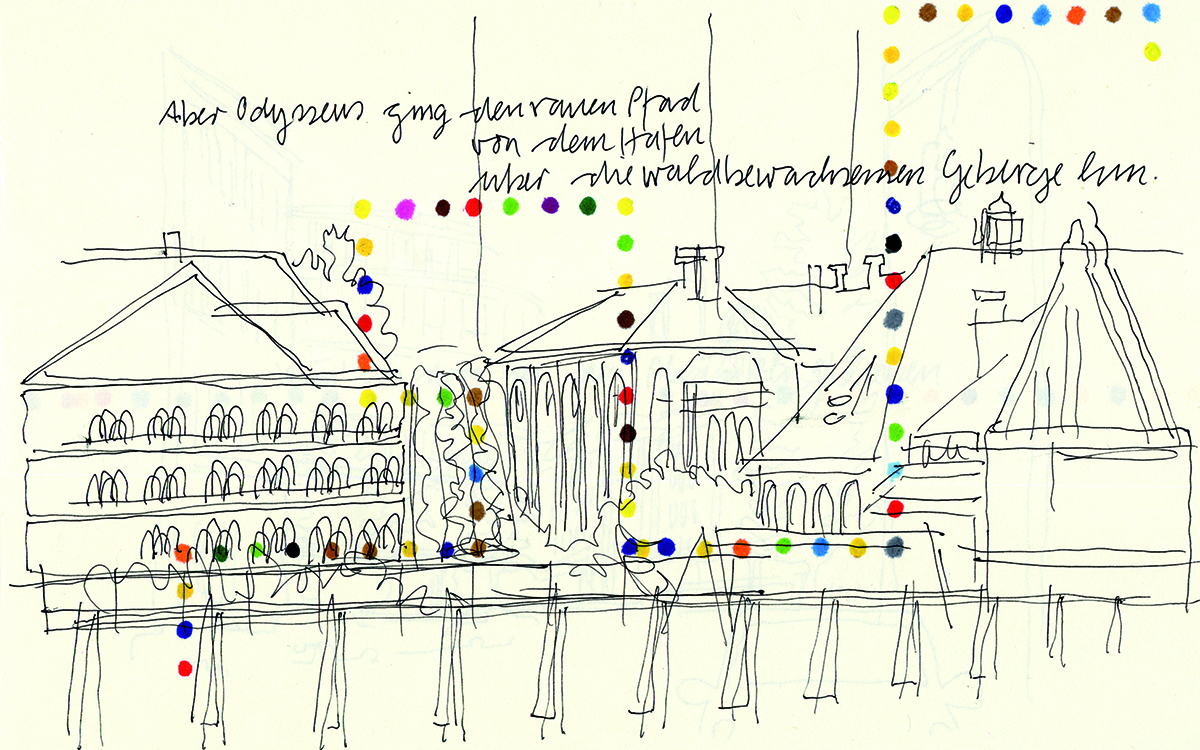 Aber Odysseus ging den rauen Pfad
von dem Hafen
über die waldbewachsenen Gebirge hin.